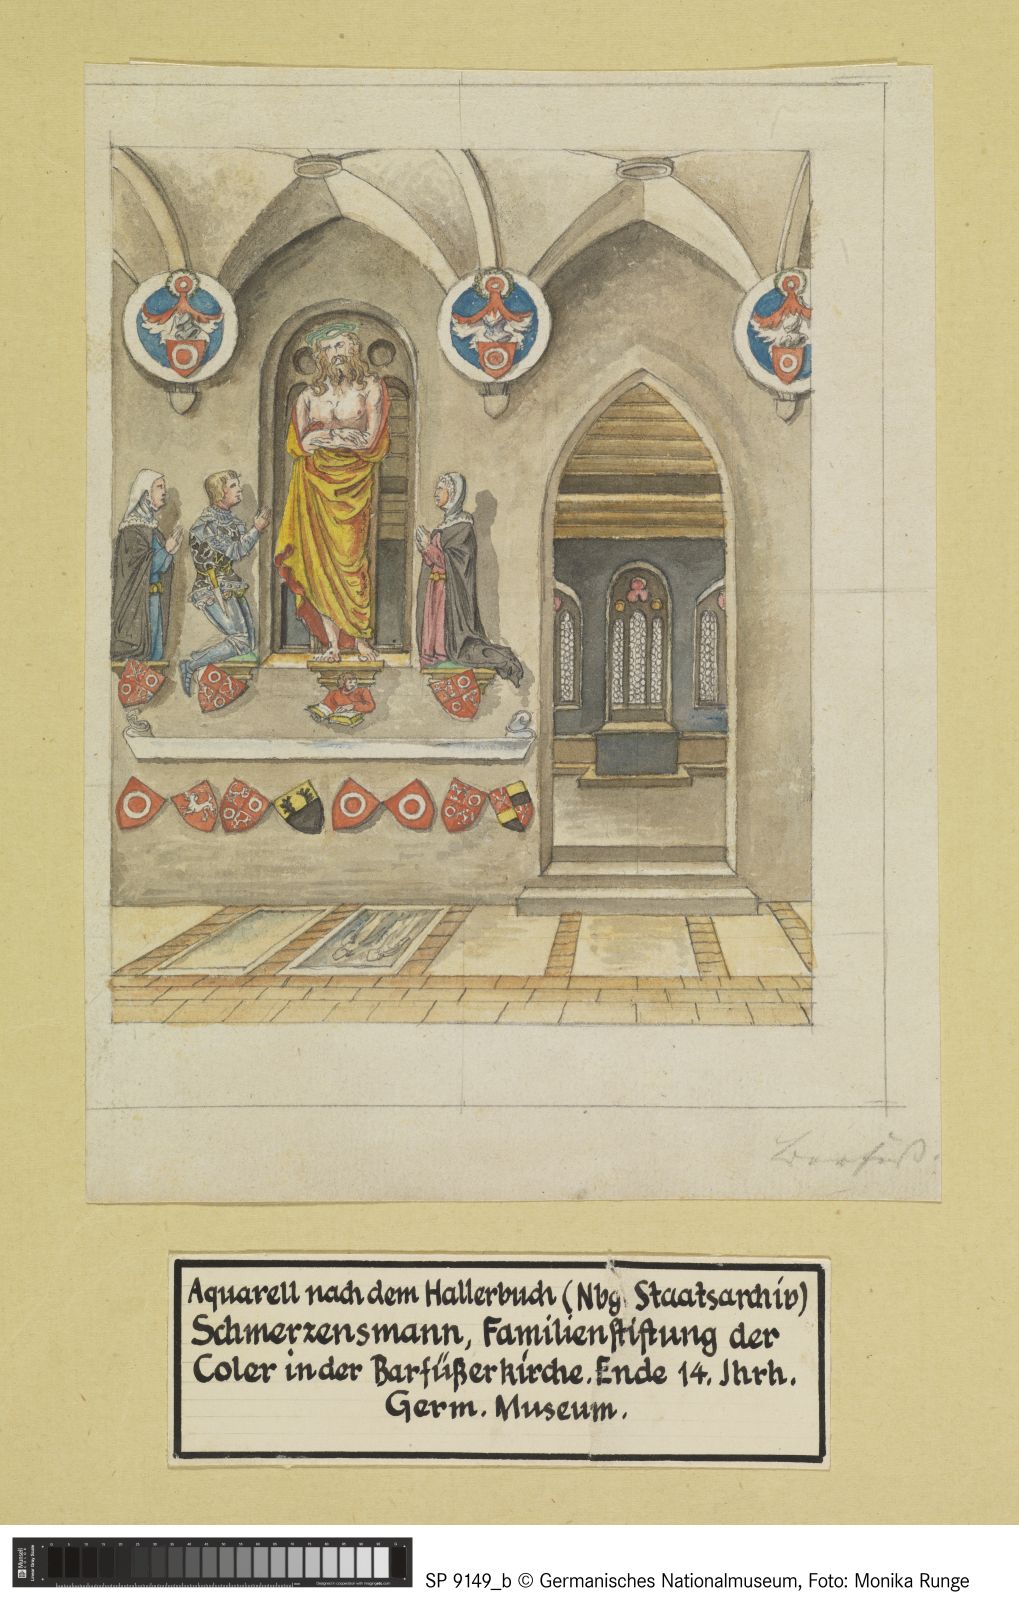 Barfüß.
Aquarell nach dem Hallerbuch (Nbg. Staatsarchiv)
Schmerzensmann, Familienstiftung der
Coler in der Barfüßerkirche. Ende 14. Jhrh.
Germ. Museum.
SP 9149_b © Germanisches Nationalmuseum, Foto: Monika Runge